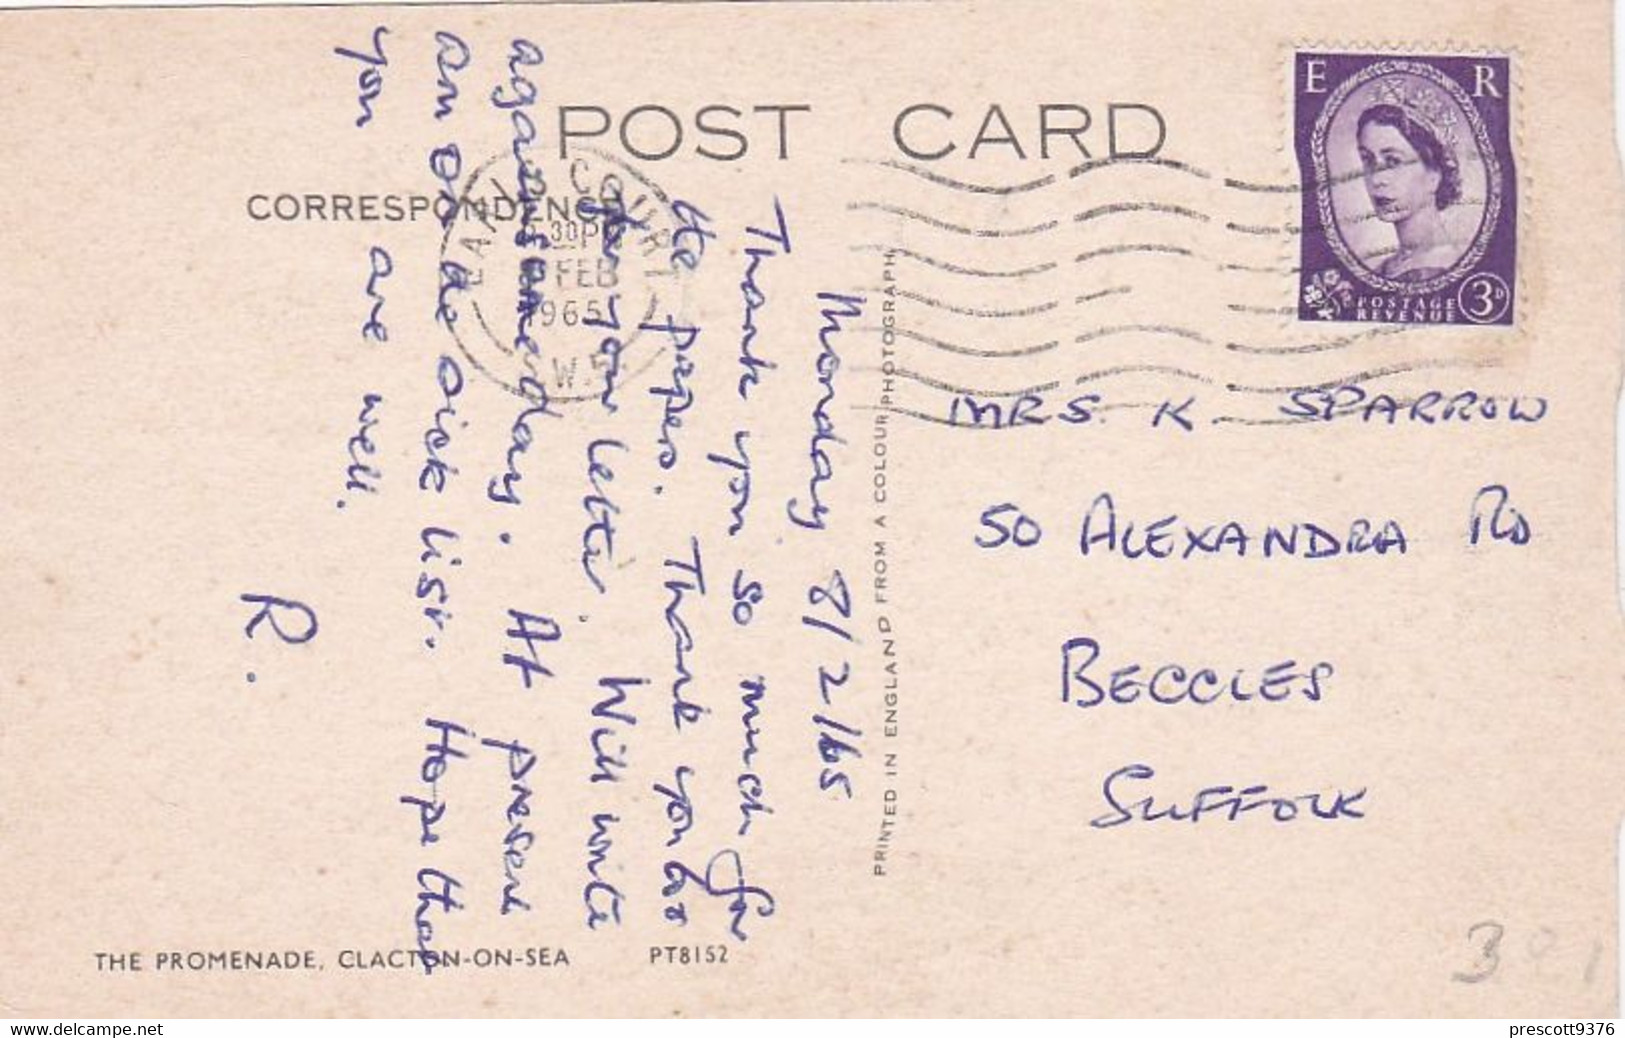 POST CARD
CORRESPONDENCE
E R
POSTAGE
REVENUE
3D
EARLS COURT
30PM
FEB
1965
W.5
Monday 8/2/65
Thank you so much for
the papers. Thank you too
for your letter. Will write
again some day. At present
am on de sick list. Hope that
you are well.
R.
PRINTED IN ENGLAND FROM A COLOUR PHOTOGRAPH
MRS. K SPARROW
50 ALEXANDRA RD
BECCLES
SUFFOLK
THE PROMENADE, CLACTON-ON-SEA PT8152
delcampe.net
prescott9376